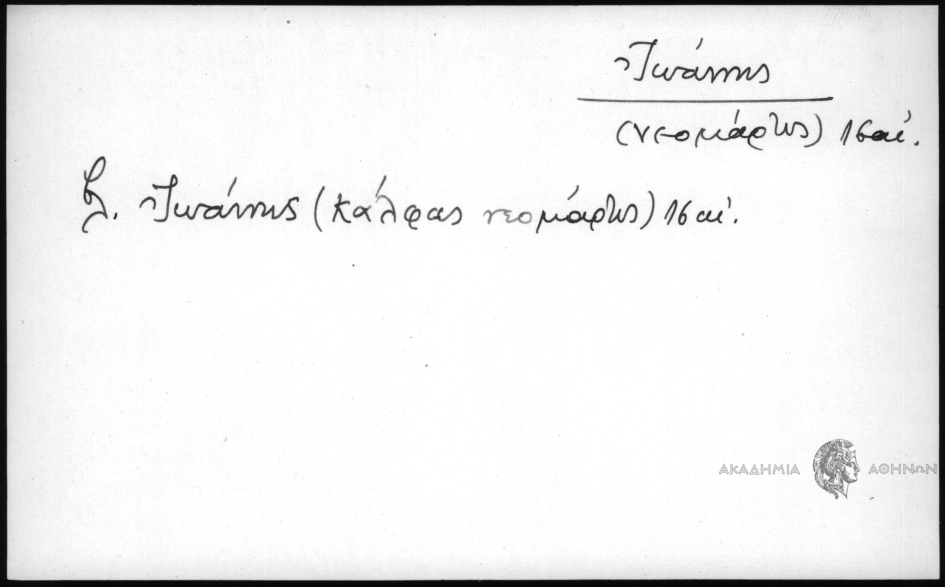 Ἰωάννης
(νεομάρτυς) 16 αἰ.
βλ. Ἰωάννης (Κάλφας νεομάρτυς) 16 αἰ.
ΑΚΑΔΗΜΙΑ ΑΘΗΝΩΝ